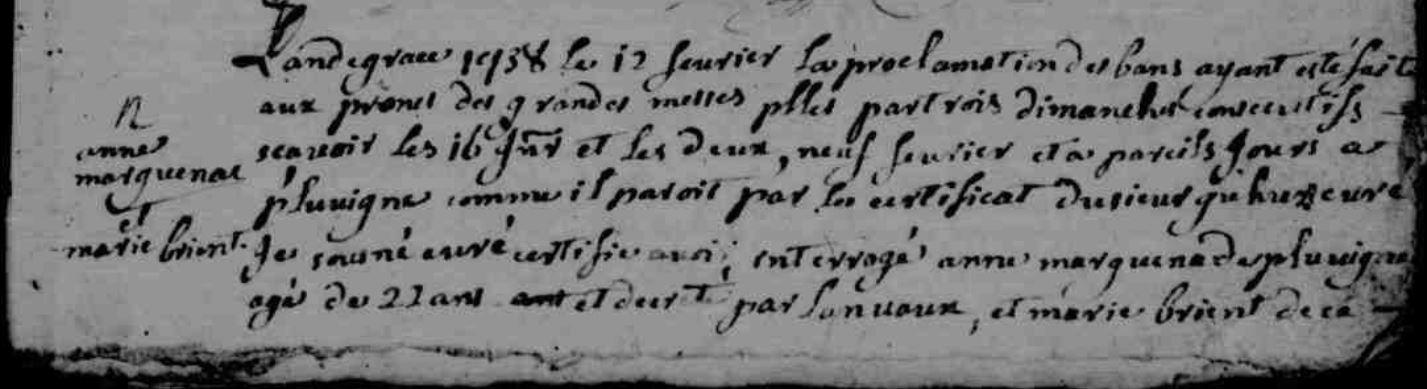 N
anne
marquenac
et
marie brient
Landegrace 1738 le 12 feurier la proclamation des bans ayant esté fait
aux prones des grandes messes plles par trois dimanches consecutifs
scavoir les 16 Jnr et les deux, neuf feurier et a pareils Jours a
pluuigne comme il paroit par le certificat du sieur curé
Je sousné curé certifie avoir interrogé anne marquenac de pluuigne
agé de 22 ans et par lanuaux, et marie brient de ce